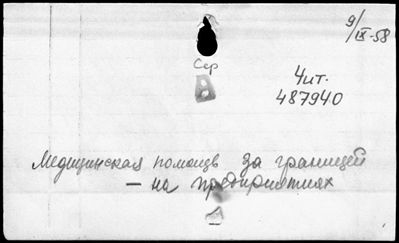 9/IX-58
Сер
Чит.
487940
Медицинская помощь за границей
— на предприятиях